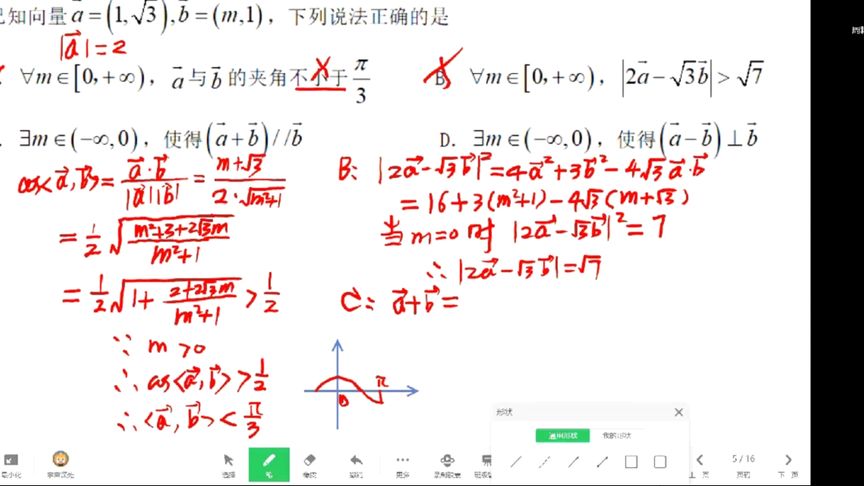 已知向量a⃗=(1,√3),b⃗=(m,1)，下列说法正确的是
|a⃗|=2
∀m∈[0,+∞)，a⃗与b⃗的夹角不小于π/3
B. ∀m∈[0,+∞)，|2a⃗-√3b⃗|>√7
. ∃m∈(-∞,0)，使得(a⃗+b⃗)//b⃗
D. ∃m∈(-∞,0)，使得(a⃗-b⃗)⊥b⃗
cos<a⃗,b⃗>=a⃗·b⃗/|a⃗||b⃗|=m+√3/2·√m²+1
=1/2√m²+3+2√3m/m²+1
=1/2√1+2+2√3m/m²+1>1/2
∵ m>0
∴ cos<a⃗,b⃗>>1/2
∴<a⃗,b⃗><π/3
B: |2a⃗-√3b⃗|²=4a⃗²+3b⃗²-4√3a⃗·b⃗
=16+3(m²+1)-4√3(m+√3)
当m=0时 |2a⃗-√3b⃗|²=7
∴|2a⃗-√3b⃗|=√7
C: a⃗+b⃗=
0
π
形状
通用形状
我的形状
最小化
选择
笔
橡皮
撤销
更多
5/16
上一页
页码
下一页